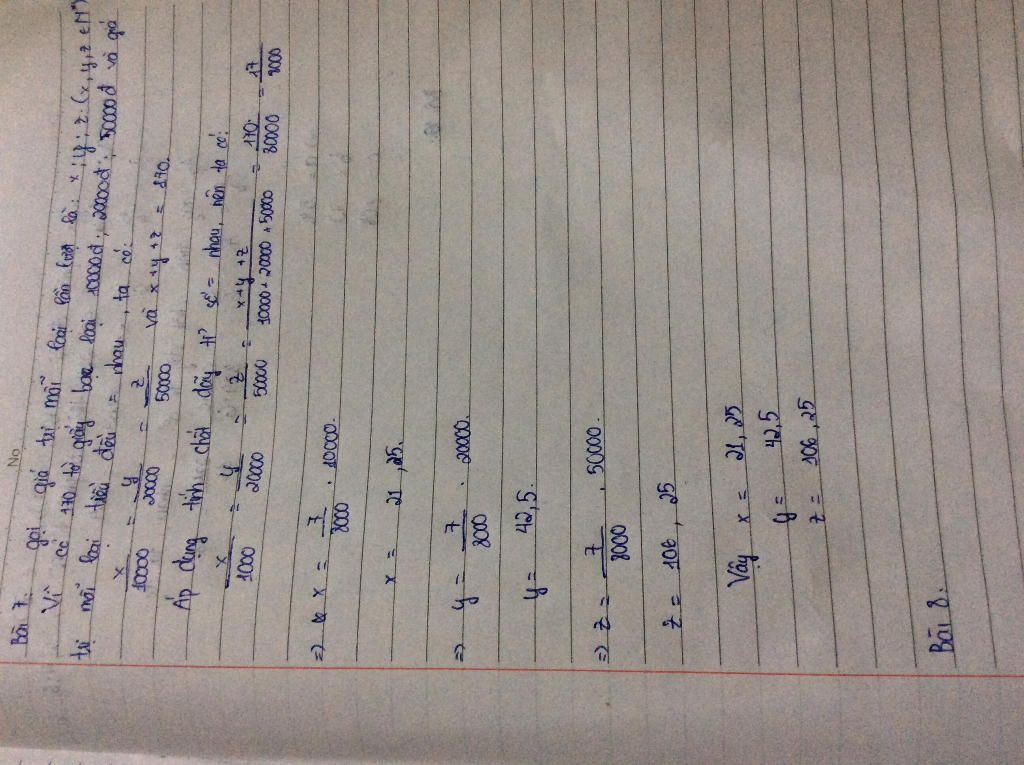 No
Bài 7: gọi giá trị mỗi loại lần lượt là: x; y; z. (x, y, z ∈ N*)
Vì có 170 tờ giấy bạc loại 10000đ; 20000đ; 50000đ và giá
trị mỗi loại tiền đều = nhau, ta có:
x/10000 = y/20000 = z/50000 và x+y+z = 170.
Áp dụng tính chất dãy tỉ số = nhau, nên ta có:
x/1000 = y/20000 = z/50000 = x+y+z/10000+20000+50000 = 170/80000 = 17/8000
=> x = 7/8000 . 10000.
x = 21,25.
=> y = 7/8000 . 20000.
y = 42,5.
=> z = 7/8000 . 50000.
z = 106,25
Vậy x = 21,25
y = 42,5
z = 106,25
Bài 8.